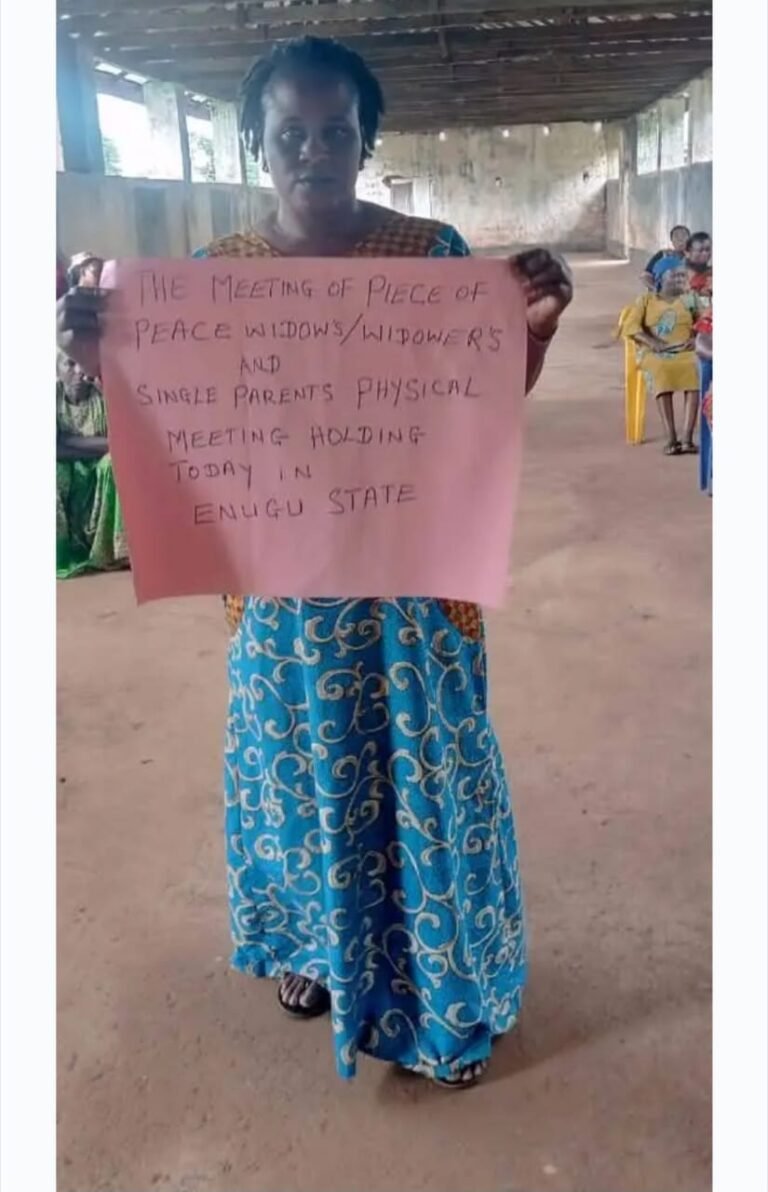 THE MEETING OF PIECE OF
PEACE WIDOW'S/WIDOWER'S
AND
SINGLE PARENTS PHYSICAL
MEETING HOLDING
TODAY IN
ENUGU STATE